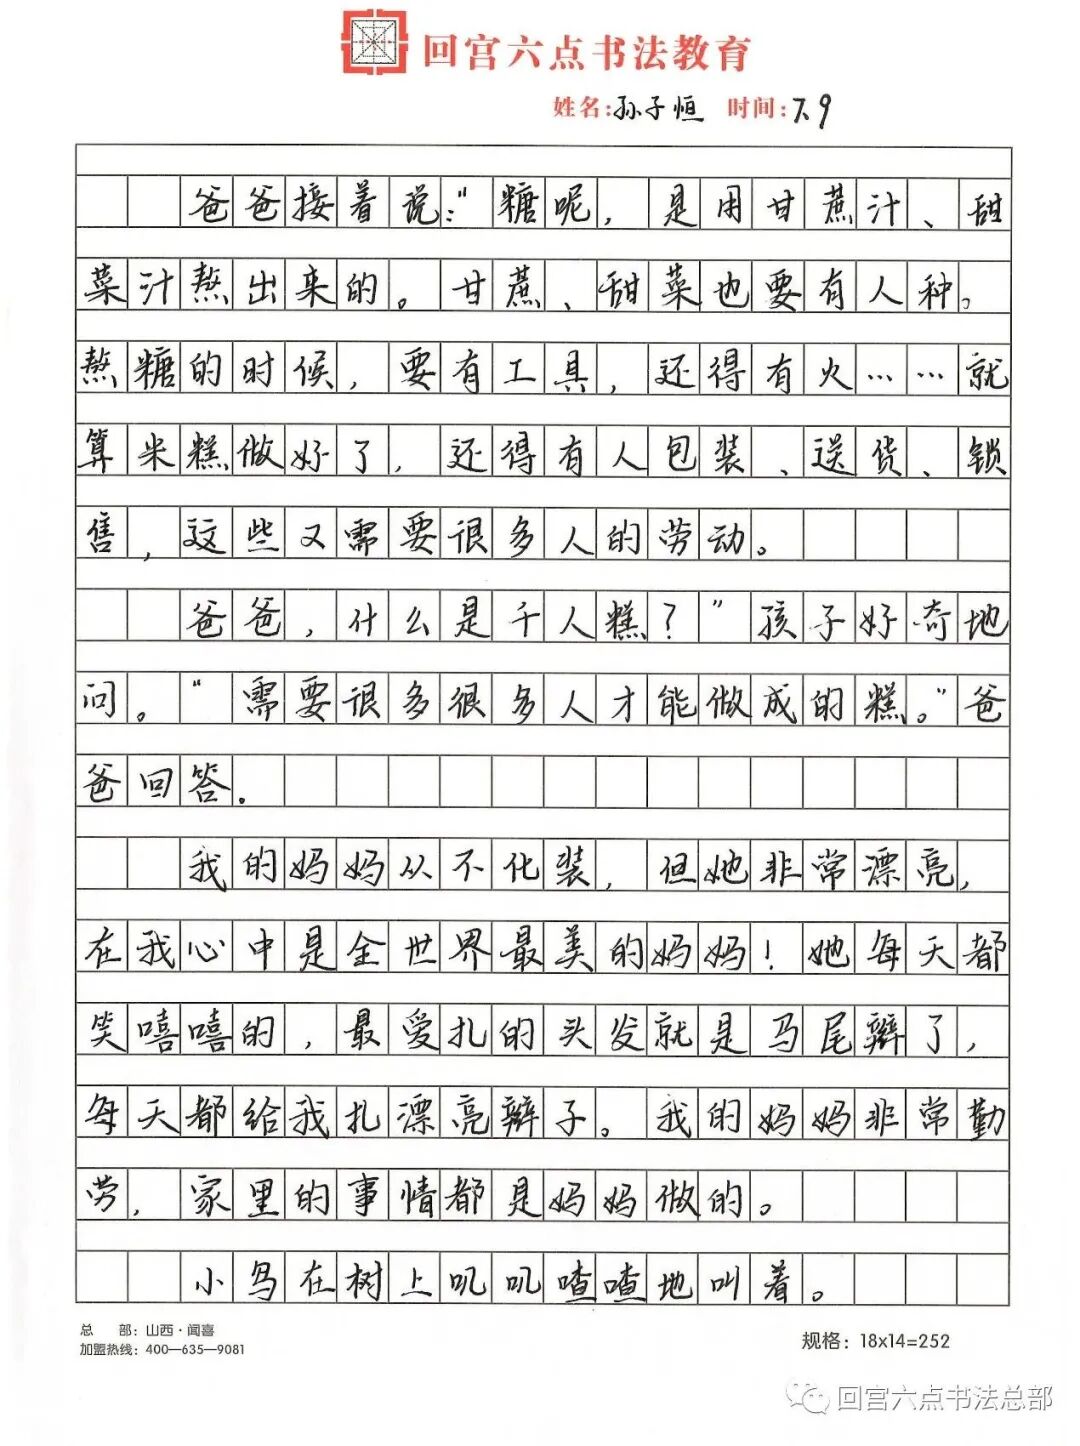 回宫六点书法教育
姓名:孙子恒 时间:7.9
爸爸接着说:“糖呢，是用甘蔗汁、甜
菜汁熬出来的。甘蔗、甜菜也要有人种。
熬糖的时候，要有工具，还得有火……就
算米糕做好了，还得有人包装、送货、锁
售，这些又需要很多人的劳动。
爸爸，什么是千人糕？”孩子好奇地
问。“需要很多很多人才能做成的糕。”爸
爸回答.
我的妈妈从不化装，但她非常漂亮，
在我心中是全世界最美的妈妈！她每天都
笑嘻嘻的，最爱扎的头发就是马尾辫了，
每天都给我扎漂亮辫子。我的妈妈非常勤
劳，家里的事情都是妈妈做的。
小鸟在树上叽叽喳喳地叫着。
总 部: 山西·闻喜
加盟热线: 400—635—9081
规格: 18x14=252
回宫六点书法总部